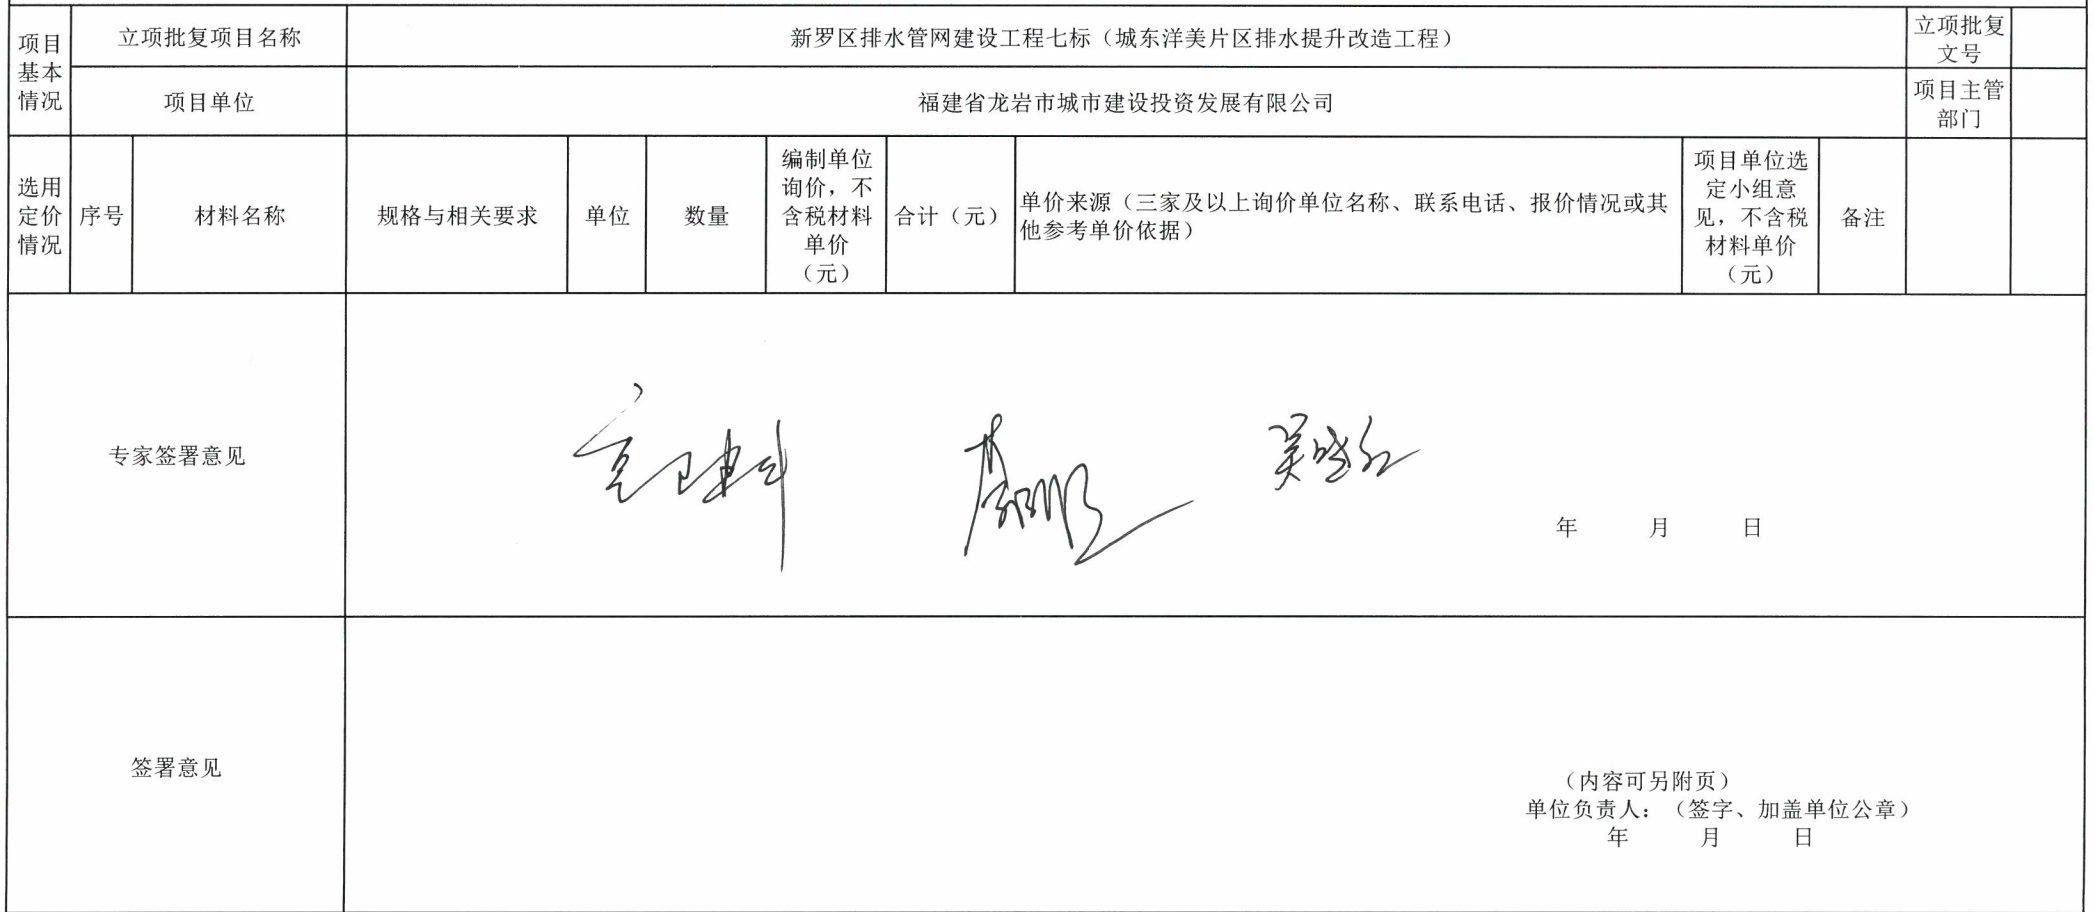 项目
基本
情况
立项批复项目名称
新罗区排水管网建设工程七标（城东洋美片区排水提升改造工程）
立项批复
文号
项目单位
福建省龙岩市城市建设投资发展有限公司
项目主管
部门
选用
定价
情况
序号
材料名称
规格与相关要求
单位
数量
编制单位
询价，不
含税材料
单价
（元）
合计（元）
单价来源（三家及以上询价单位名称、联系电话、报价情况或其
他参考单价依据）
项目单位选
定小组意
见，不含税
材料单价
（元）
备注
专家签署意见
年 月 日
签署意见
（内容可另附页）
单位负责人：（签字、加盖单位公章）
年 月 日